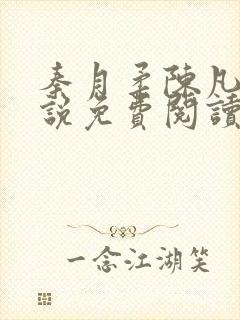 秦月柔陳凡
說免費閱讀
一念江湖笑